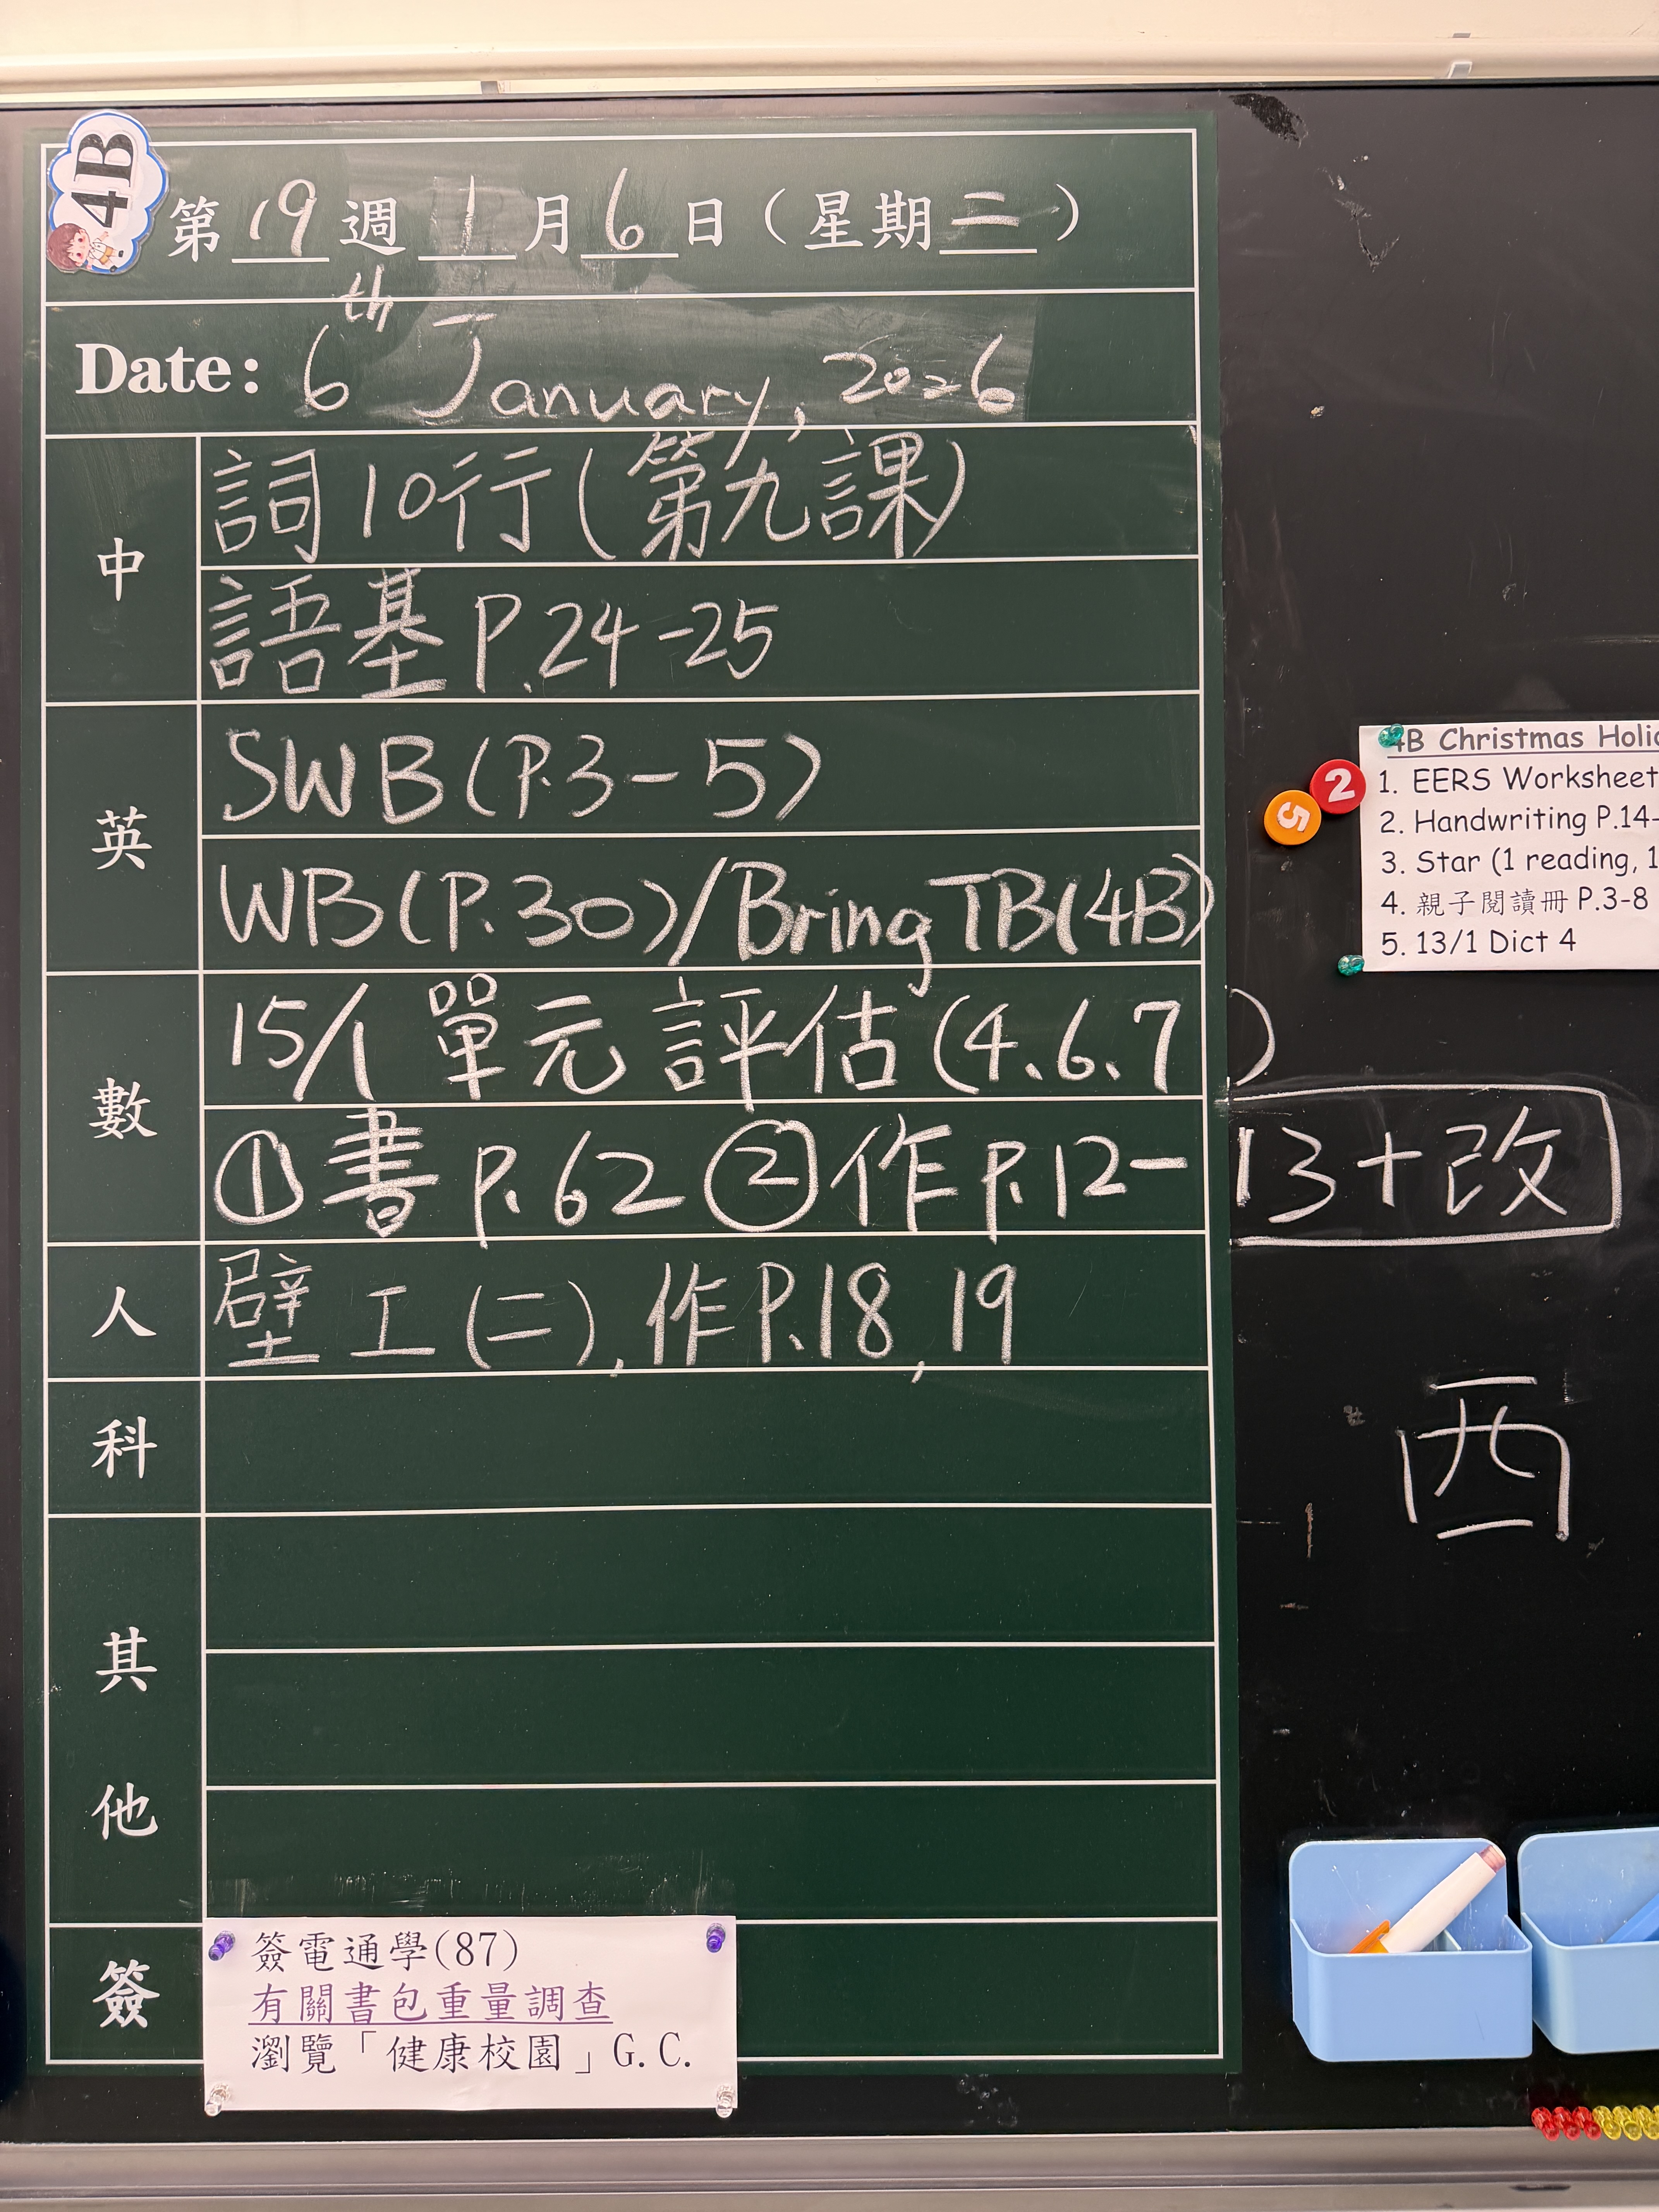 4B
第 19 週 1 月 6 日（星期二）
Date: 6th January, 2026
中
詞10行(第九課)
語基 P.24-25
英
SWB(P.3-5)
WB(P.30)/Bring TB(4B)
數
15/1 單元評估(4、6、7)
①書 P.62 ②作 P.12-13+改
人
壁工(二), 作P.18, 19
科
其他
簽
簽電通學(87)
有關書包重量調查
瀏覽「健康校園」G.C.
4B Christmas Holi
1. EERS Worksheet
2. Handwriting P.14-
3. Star (1 reading, 1
4. 親子閱讀冊 P.3-8
5. 13/1 Dict 4
2
5